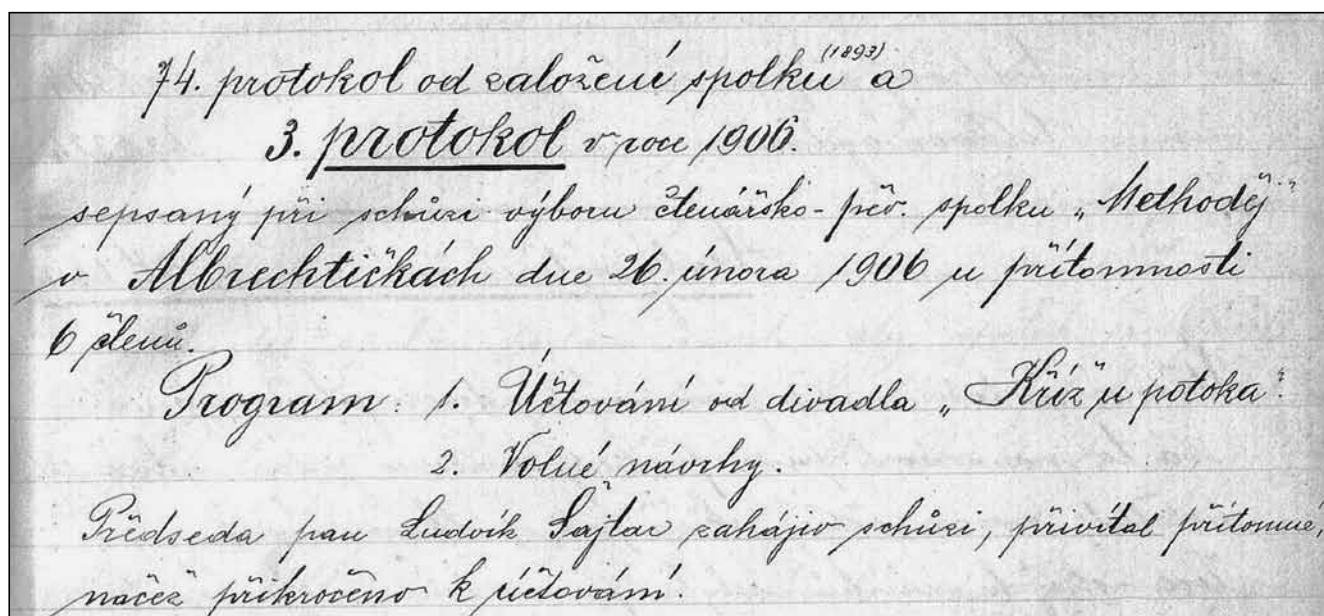 74. protokol od založení spolku (1893) a
3. protokol v roce 1906.
sepsaný při schůzi výboru čtenářsko-pěv. spolku „Methoděj“
v Albrechtičkách dne 26. února 1906 u přítomnosti
6 členů.
Program: 1. Účtování od divadla „Kříž u potoka“.
2. Volné návrhy.
Předseda pan Ludvík Šajtar zahájiv schůzi, přivítal přítomné,
načež přikročeno k účtování.